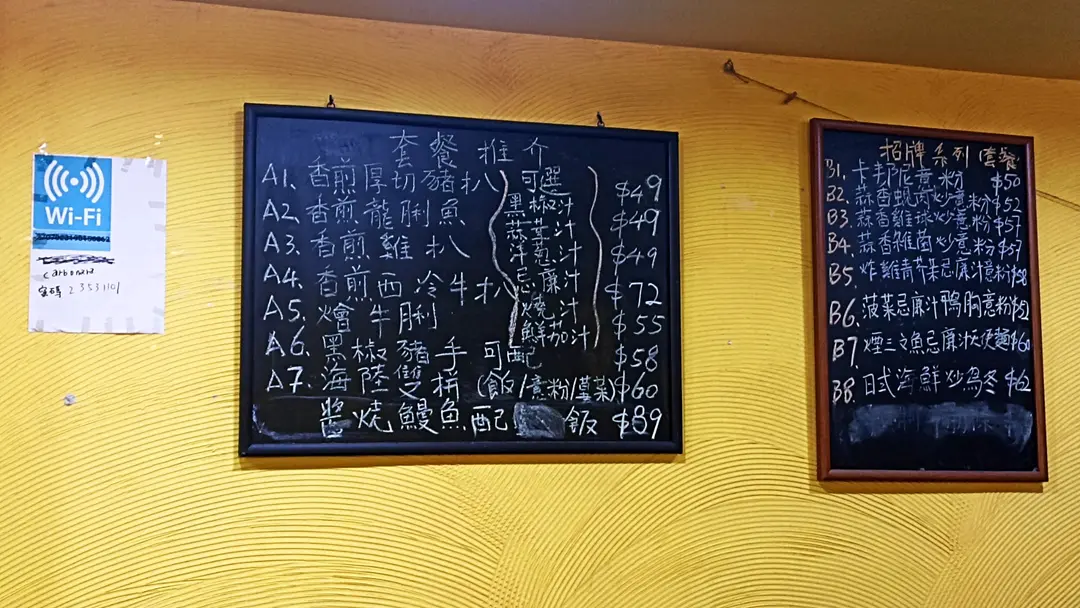 Wi-Fi
carbonara
密碼 23531101
套餐推介
A1. 香煎厚切豬扒 $49
A2. 香煎龍脷魚 $49
A3. 香煎雞扒 $49
A4. 香煎西冷牛扒 $72
A5. 燴牛脷 $55
A6. 黑椒豬手 $58
A7. 海陸雙拼 $60
醬燒鰻魚配 飯 $89
可選
黑椒汁
蒜茸汁
洋蔥汁
忌廉汁
燒汁
鮮茄汁
可配
(飯/意粉/薯菜)
招牌系列套餐
B1. 卡邦尼意粉 $50
B2. 蒜香蜆肉炒意粉 $52
B3. 蒜香雞球炒意粉 $57
B4. 蒜香雜菌炒意粉 $57
B5. 炸雞青芥末忌廉汁意粉 $58
B6. 菠菜忌廉汁鴨胸意粉 $52
B7. 煙三文魚忌廉汁天使麵 $60
B8. 日式海鮮炒烏冬 $62